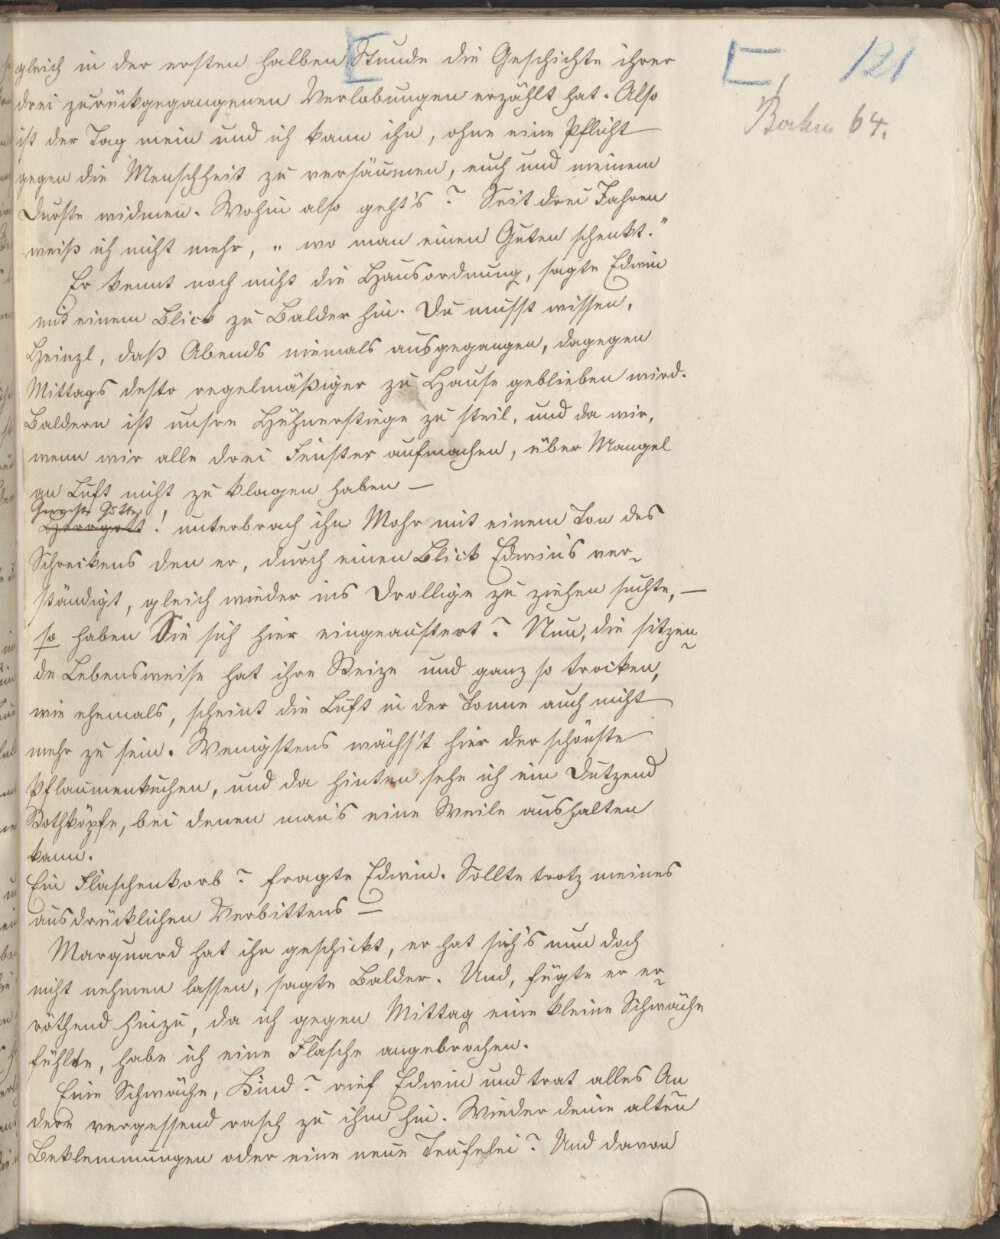 121
Bohn 64.
gleich in der ersten halben Stunde die Geschichte ihrer
drei zurückgegangenen Verlobungen erzählt hat. Also
ist der Tag mein und ich kann ihn, ohne eine Pflicht
gegen die Menschheit zu versäumen, euch und meinem
Durste widmen. Wohin also geht's? Seit drei Jahren
weiß ich nicht mehr, „wo man einen Guten schenkt."
Er kennt noch nicht die Hausordnung, sagte Edwin
mit einem Blick zu Balder hin. Du musst wissen,
Heinzl, daß Abends niemals ausgegangen, dagegen
Mittags desto regelmäßiger zu Hause geblieben wird.
Baldern ist unsre Hühnerstiege zu steil, und da wir,
wenn wir alle drei Fenster aufmachen, über Mangel
an Luft nicht zu klagen haben —
Gerechte Götter!
Herrgott! unterbrach ihn Mohr mit einem Ton des
Schreckens den er, durch einen Blick Edwin's ver-
ständigt, gleich wieder ins Drollige zu ziehen suchte, —
so haben Sie sich hier eingeaustert? Nun, die sitzen-
de Lebensweise hat ihre Reize und ganz so trocken,
wie ehemals, scheint die Luft in der Tonne auch nicht
mehr zu sein. Wenigstens wächs't hier der schönste
Pflaumenkuchen, und da hinten sehe ich ein Dutzend
Rothköpfe, bei denen man's eine Weile aushalten
kann.
Ein Flaschenkorb? fragte Edwin. Sollte trotz meines
ausdrücklichen Verbittens —
Marquard hat ihn geschickt, er hat sich's nun doch
nicht nehmen lassen, sagte Balder. Und, fügte er er-
röthend hinzu, da ich gegen Mittag eine kleine Schwäche
fühlte, habe ich eine Flasche angebrochen.
Eine Schwäche, Kind? rief Edwin und trat alles An
dere vergessend rasch zu ihm hin. Wieder deine alten
Beklemmungen oder eine neue Teufelei? Und davon